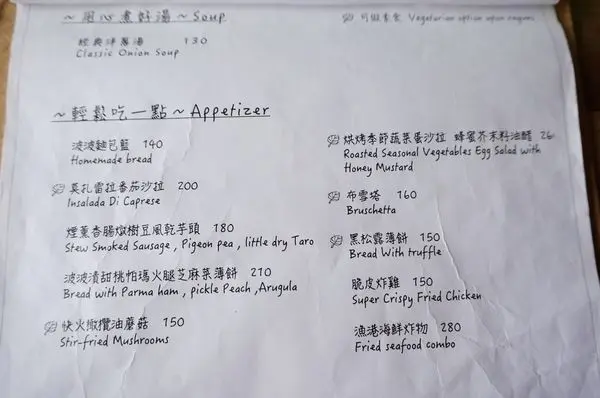 ～用心煮好湯～Soup
可做素食 Vegetarian option upon request
經典洋蔥湯 130
Classic Onion Soup
～輕鬆吃一點～Appetizer
波波麵包籃 140
Homemade bread
莫扎雷拉番茄沙拉 200
Insalada Di Caprese
煙薰香腸燉樹豆風乾芋頭 180
Stew Smoked Sausage , Pigeon pea , little dry Taro
波波漬甜桃帕瑪火腿芝麻葉薄餅 210
Bread with Parma ham , pickle Peach , Arugula
快火橄欖油蘑菇 150
Stir-fried Mushrooms
烘烤季節蔬菜蛋沙拉 蜂蜜芥末籽油醋 26
Roasted Seasonal Vegetables Egg Salad with
Honey Mustard
布雪塔 160
Bruschetta
黑松露薄餅 150
Bread With truffle
脆皮炸雞 150
Super Crispy Fried Chicken
漁港海鮮炸物 280
Fried seafood combo